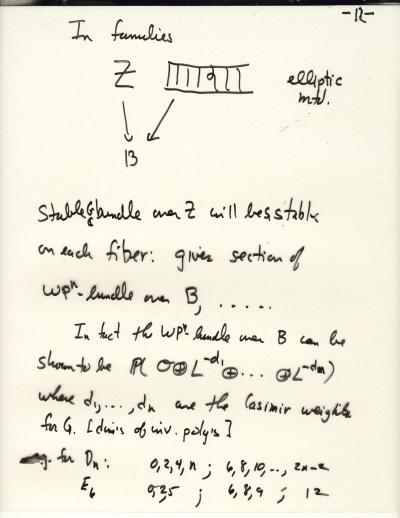 -12-
In families
Z
elliptic
mfd.
B
Stable G bundle over Z will be s.stable
on each fiber: gives section of
WPⁿ-bundle over B, .....
In fact the WPⁿ-bundle over B can be
shown to be P(O⊕L^{-d₁}⊕...⊕L^{-dₙ})
where d₁,...,dₙ are the Casimir weights
for G. [dim's of inv. polys]
e.g. for Dₙ: 0,2,4,n ; 6,8,10,..,2n-2
E₆ 0,2,5 ; 6,8,9 ; 12